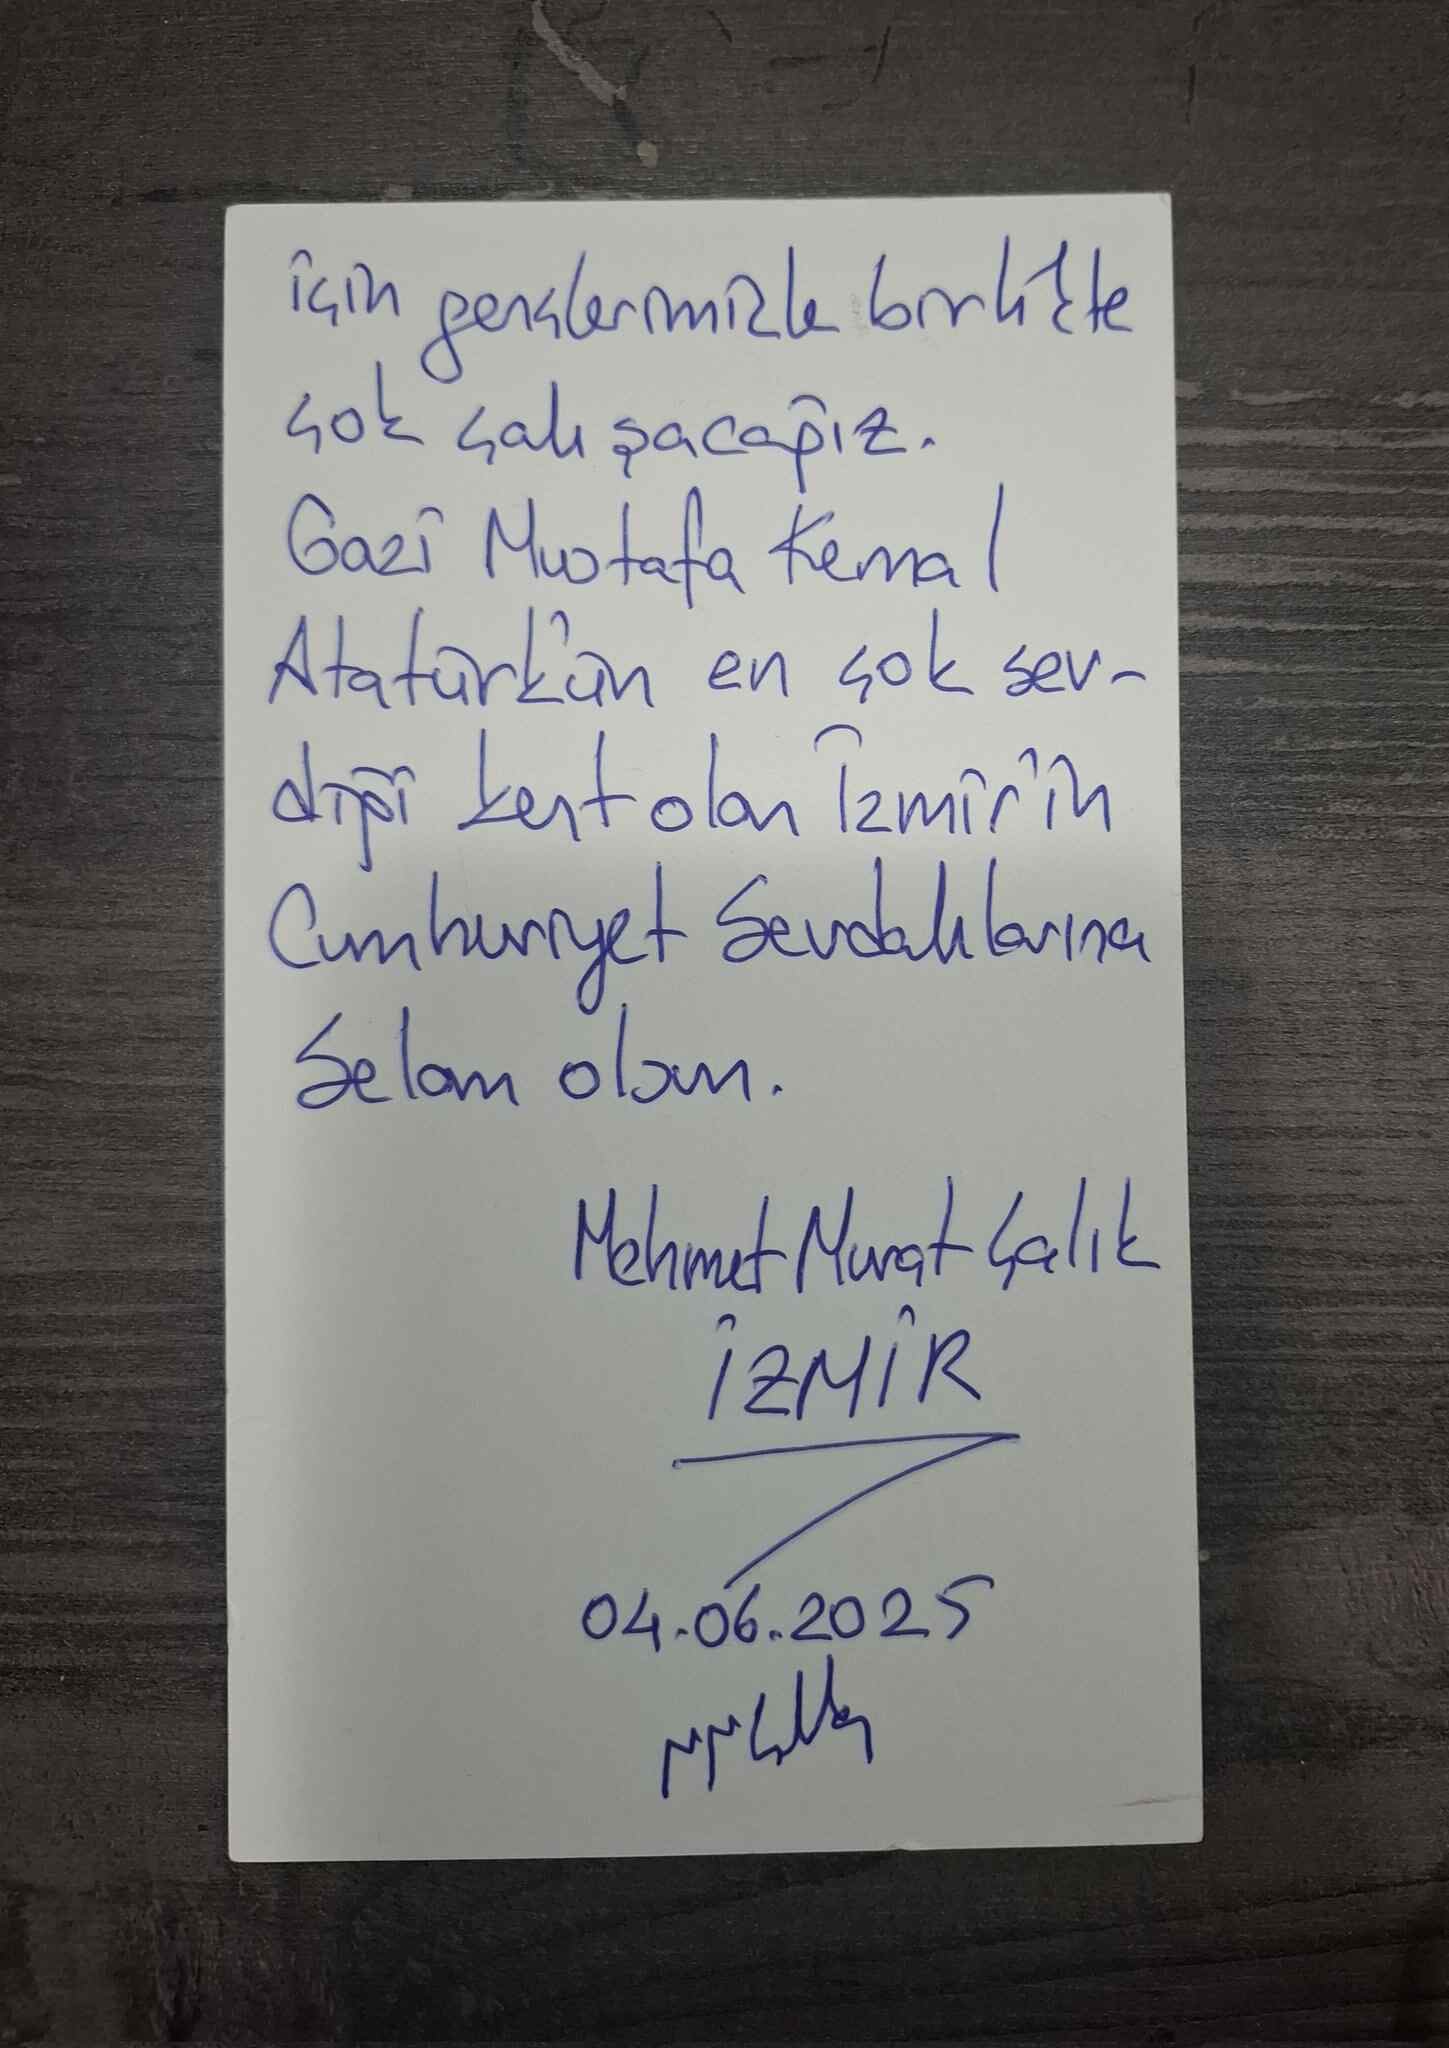 için gençlerimizle birlikte
çok çalışacağız.
Gazi Mustafa Kemal
Atatürk'ün en çok sev-
diği kent olan İzmir'in
Cumhuriyet Sevdalılarına
Selam olsun.
Mehmet Murat Çalık
İZMİR
04.06.2025